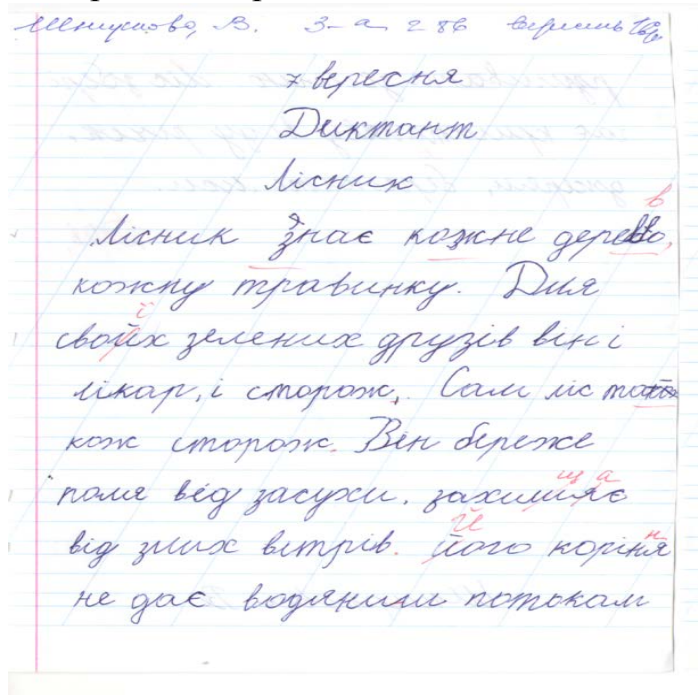 В. 3-а вересень
7 вересня
Диктант
Лісник
в
Лісник знає кожне дерево,
кожну травинку. Для
ї
свойх зелених друзів він і
лікар, і сторож. Сам ліс та
кож сторож. Він береже
поля від засухи. захишяє
ща
Й
від злих вітрів. його коріня
н
не дає водяним потокам